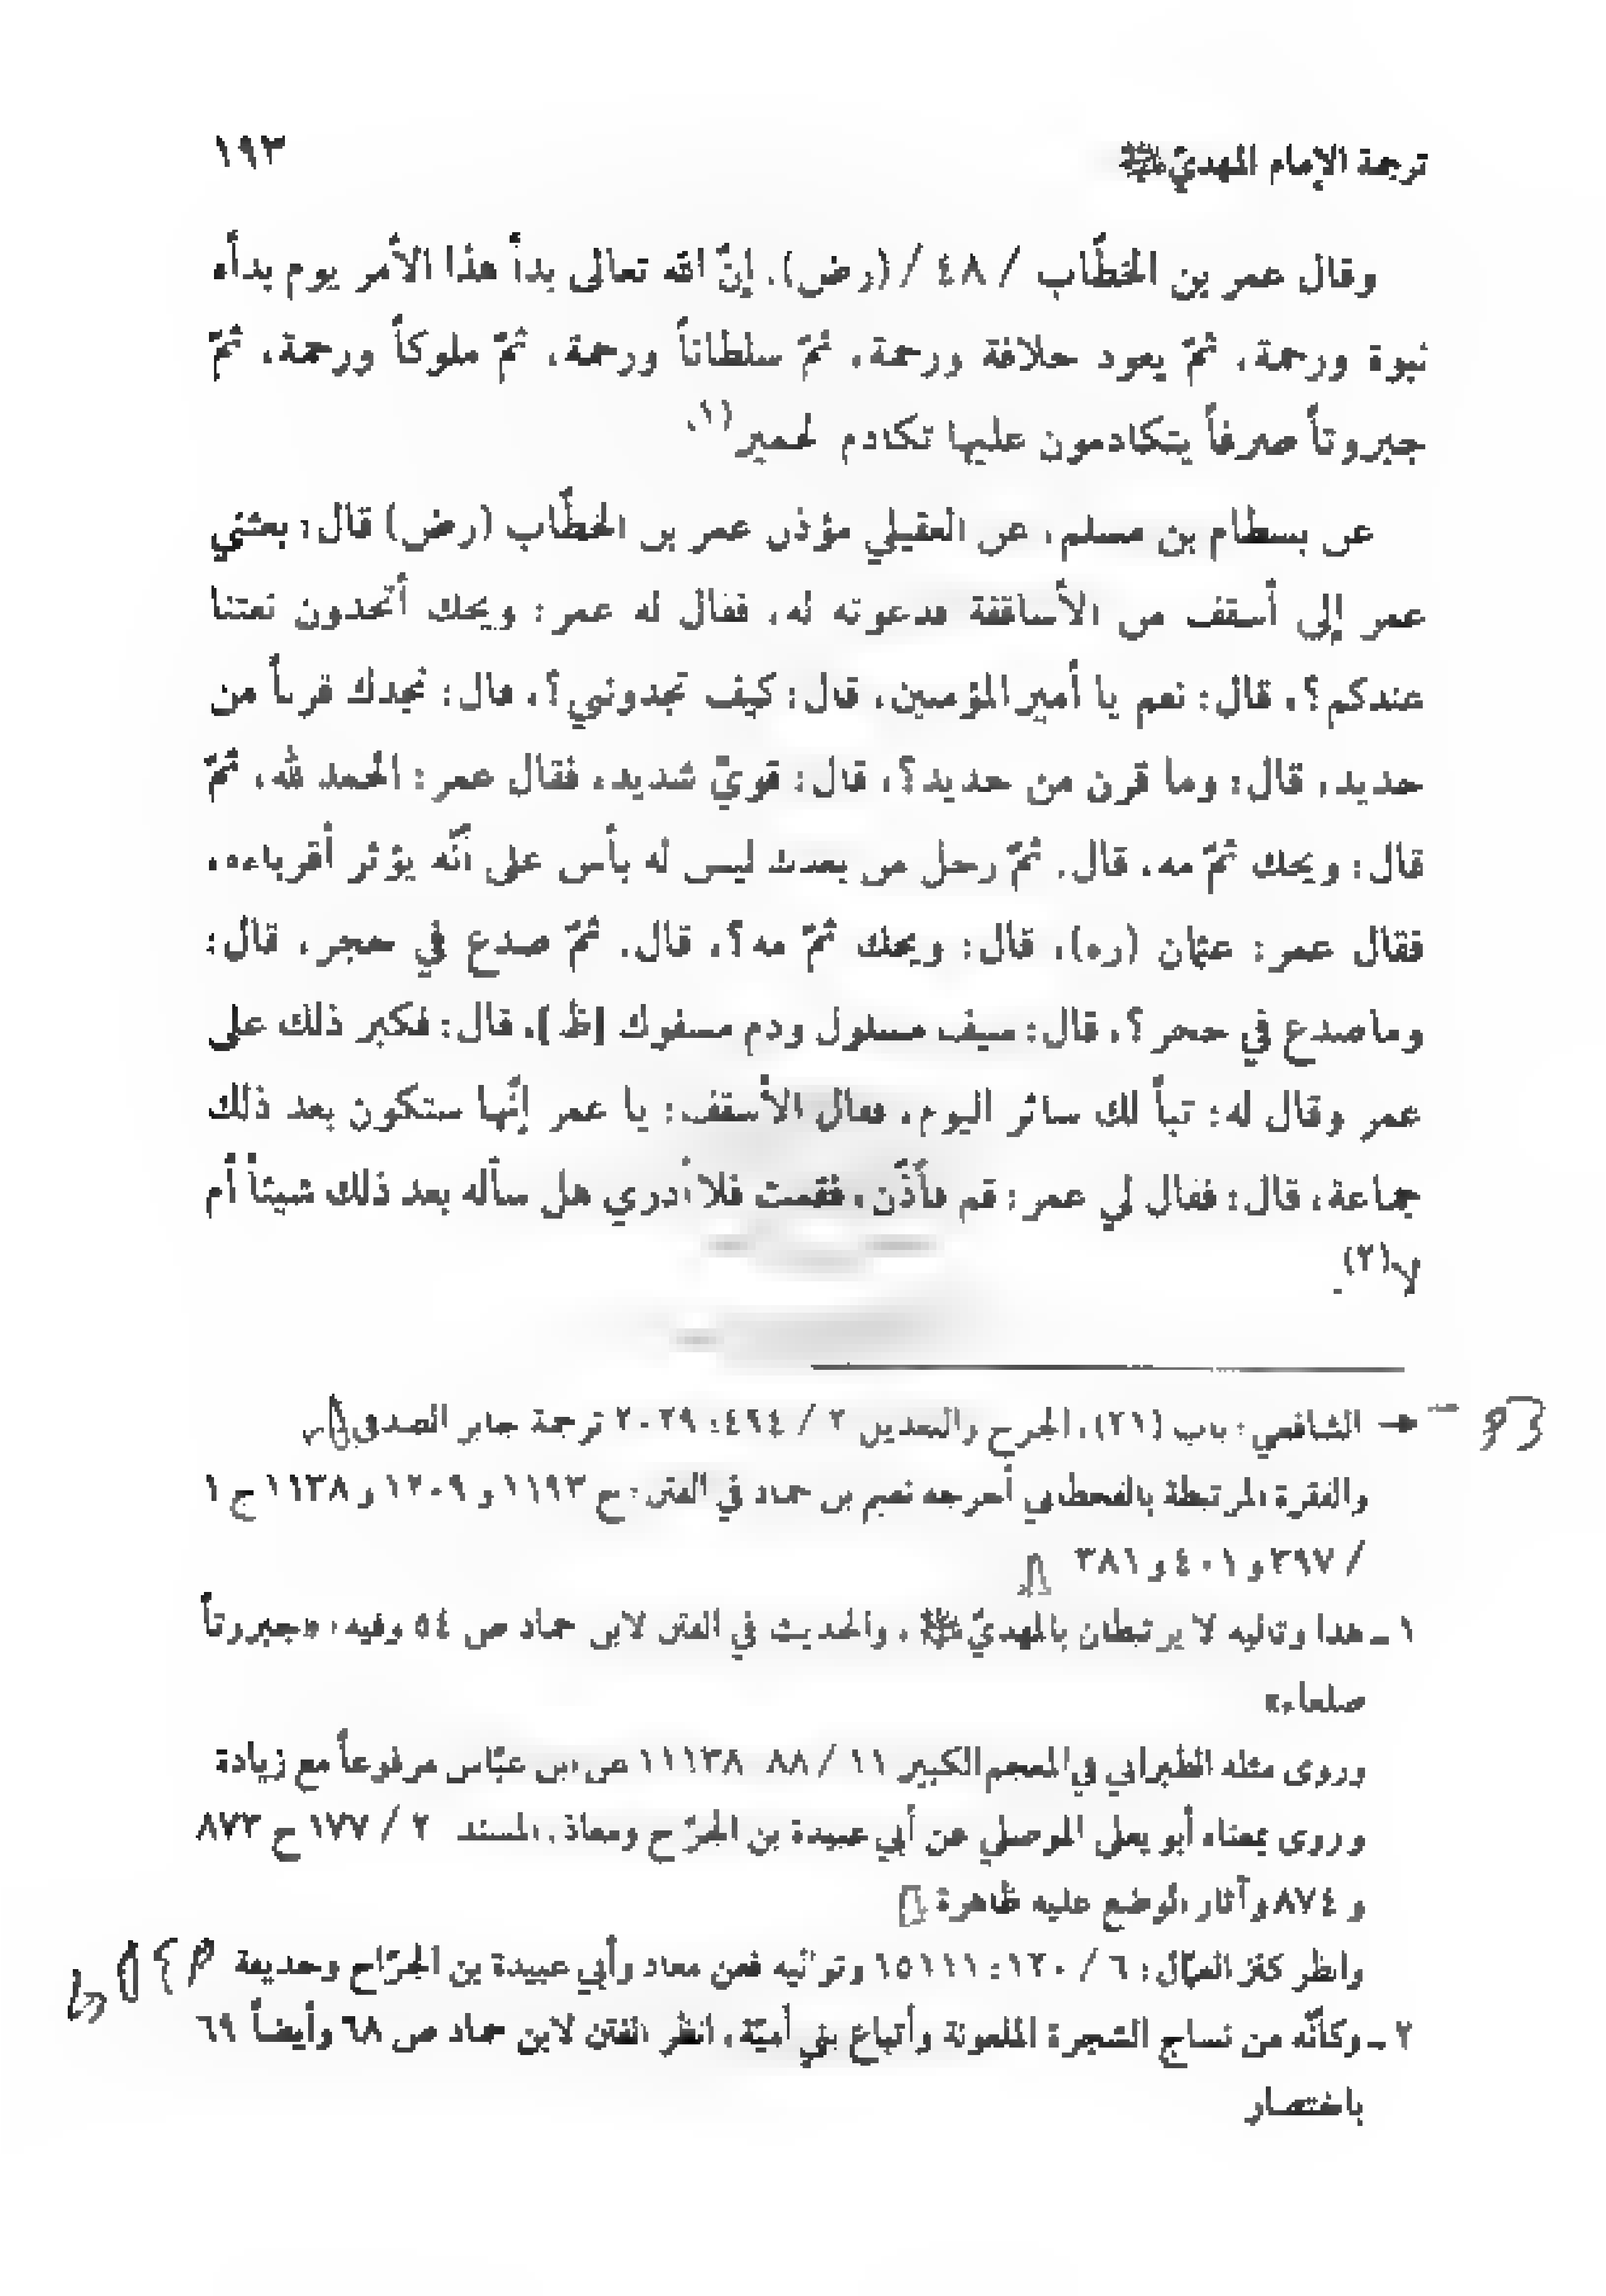 ترجمة الإمام المهديّ ﷺ ١٩٣
وقال عمر بن الخطّاب / ٤٨ / (رض): إنّ الله تعالى بدأ هذا الأمر يوم بدأه
نبوة ورحمة، ثمّ يعود خلافة ورحمة، ثمّ سلطاناً ورحمة، ثمّ ملوكاً ورحمة، ثمّ
جبروتاً صرفاً يتكادمون عليها تكادم الحمير(١).
عن بسطام بن مسلم، عن العقيلي مؤذن عمر بن الخطّاب (رض) قال: بعثني
عمر إلى أسقف من الأساقفة فدعوته له، فقال له عمر: ويحك أتجدون نعتنا
عندكم؟، قال: نعم يا أمير المؤمنين، قال: كيف تجدوني؟، قال: نجدك قرناً من
حديد، قال: وما قرن من حديد؟، قال: قويّ شديد، فقال عمر: الحمد لله، ثمّ
قال: ويحك ثمّ مه، قال: ثمّ رجل من بعدك ليس له بأس على أنّه يؤثر أقرباءه،
فقال عمر: عثمان (ره)، قال: ويحك ثمّ مه؟، قال: ثمّ صدع في حجر، قال:
وما صدع في حجر؟، قال: سيف مسلول ودم مسفوك [ظ]، قال: فكبر ذلك على
عمر وقال له: تباً لك سائر اليوم، فقال الأسقف: يا عمر إنّها ستكون بعد ذلك
جماعة، قال: فقال لي عمر: قم فأذّن، فقمت فلا أدري هل سأله بعد ذلك شيئاً أم
لا(٢).
← الشافعي: باب (٢١)، الجرح والتعديل ٢ / ٤٩٤: ٢٠٢٩ ترجمة جابر الصدفي
والفقرة المرتبطة بالقحطاني أخرجه نعيم بن حماد في الفتن: ح ١١٩٣ و ١٢٠٩ و ١١٣٨ ج ١
/ ٣٩٧ و ٤٠١ و ٣٨١
١ ـ هذا وتاليه لا يرتبطان بالمهديّ ﷺ، والحديث في الفتن لابن حماد ص ٥٤ وفيه: «جبروتاً
صلعاء»
وروى مثله الطبراني في المعجم الكبير ١١ / ٨٨ ١١١٣٨ عن ابن عبّاس مرفوعاً مع زيادة
وروى بمعناه أبو يعلى الموصلي عن أبي عبيدة بن الجرّاح ومعاذ، المسند ٢ / ١٧٧ ح ٨٧٣
و ٨٧٤ وآثار الوضع عليه ظاهرة
وانظر كنز العمّال: ٦ / ١٢٠: ١٥١١١ وتواليه فعن معاذ وأبي عبيدة بن الجرّاح وحذيفة
٢ ـ وكأنّه من نساج الشجرة الملعونة وأتباع بني أميّة، انظر الفتن لابن حماد ص ٦٨ وأيضاً ٦٩
باختصار